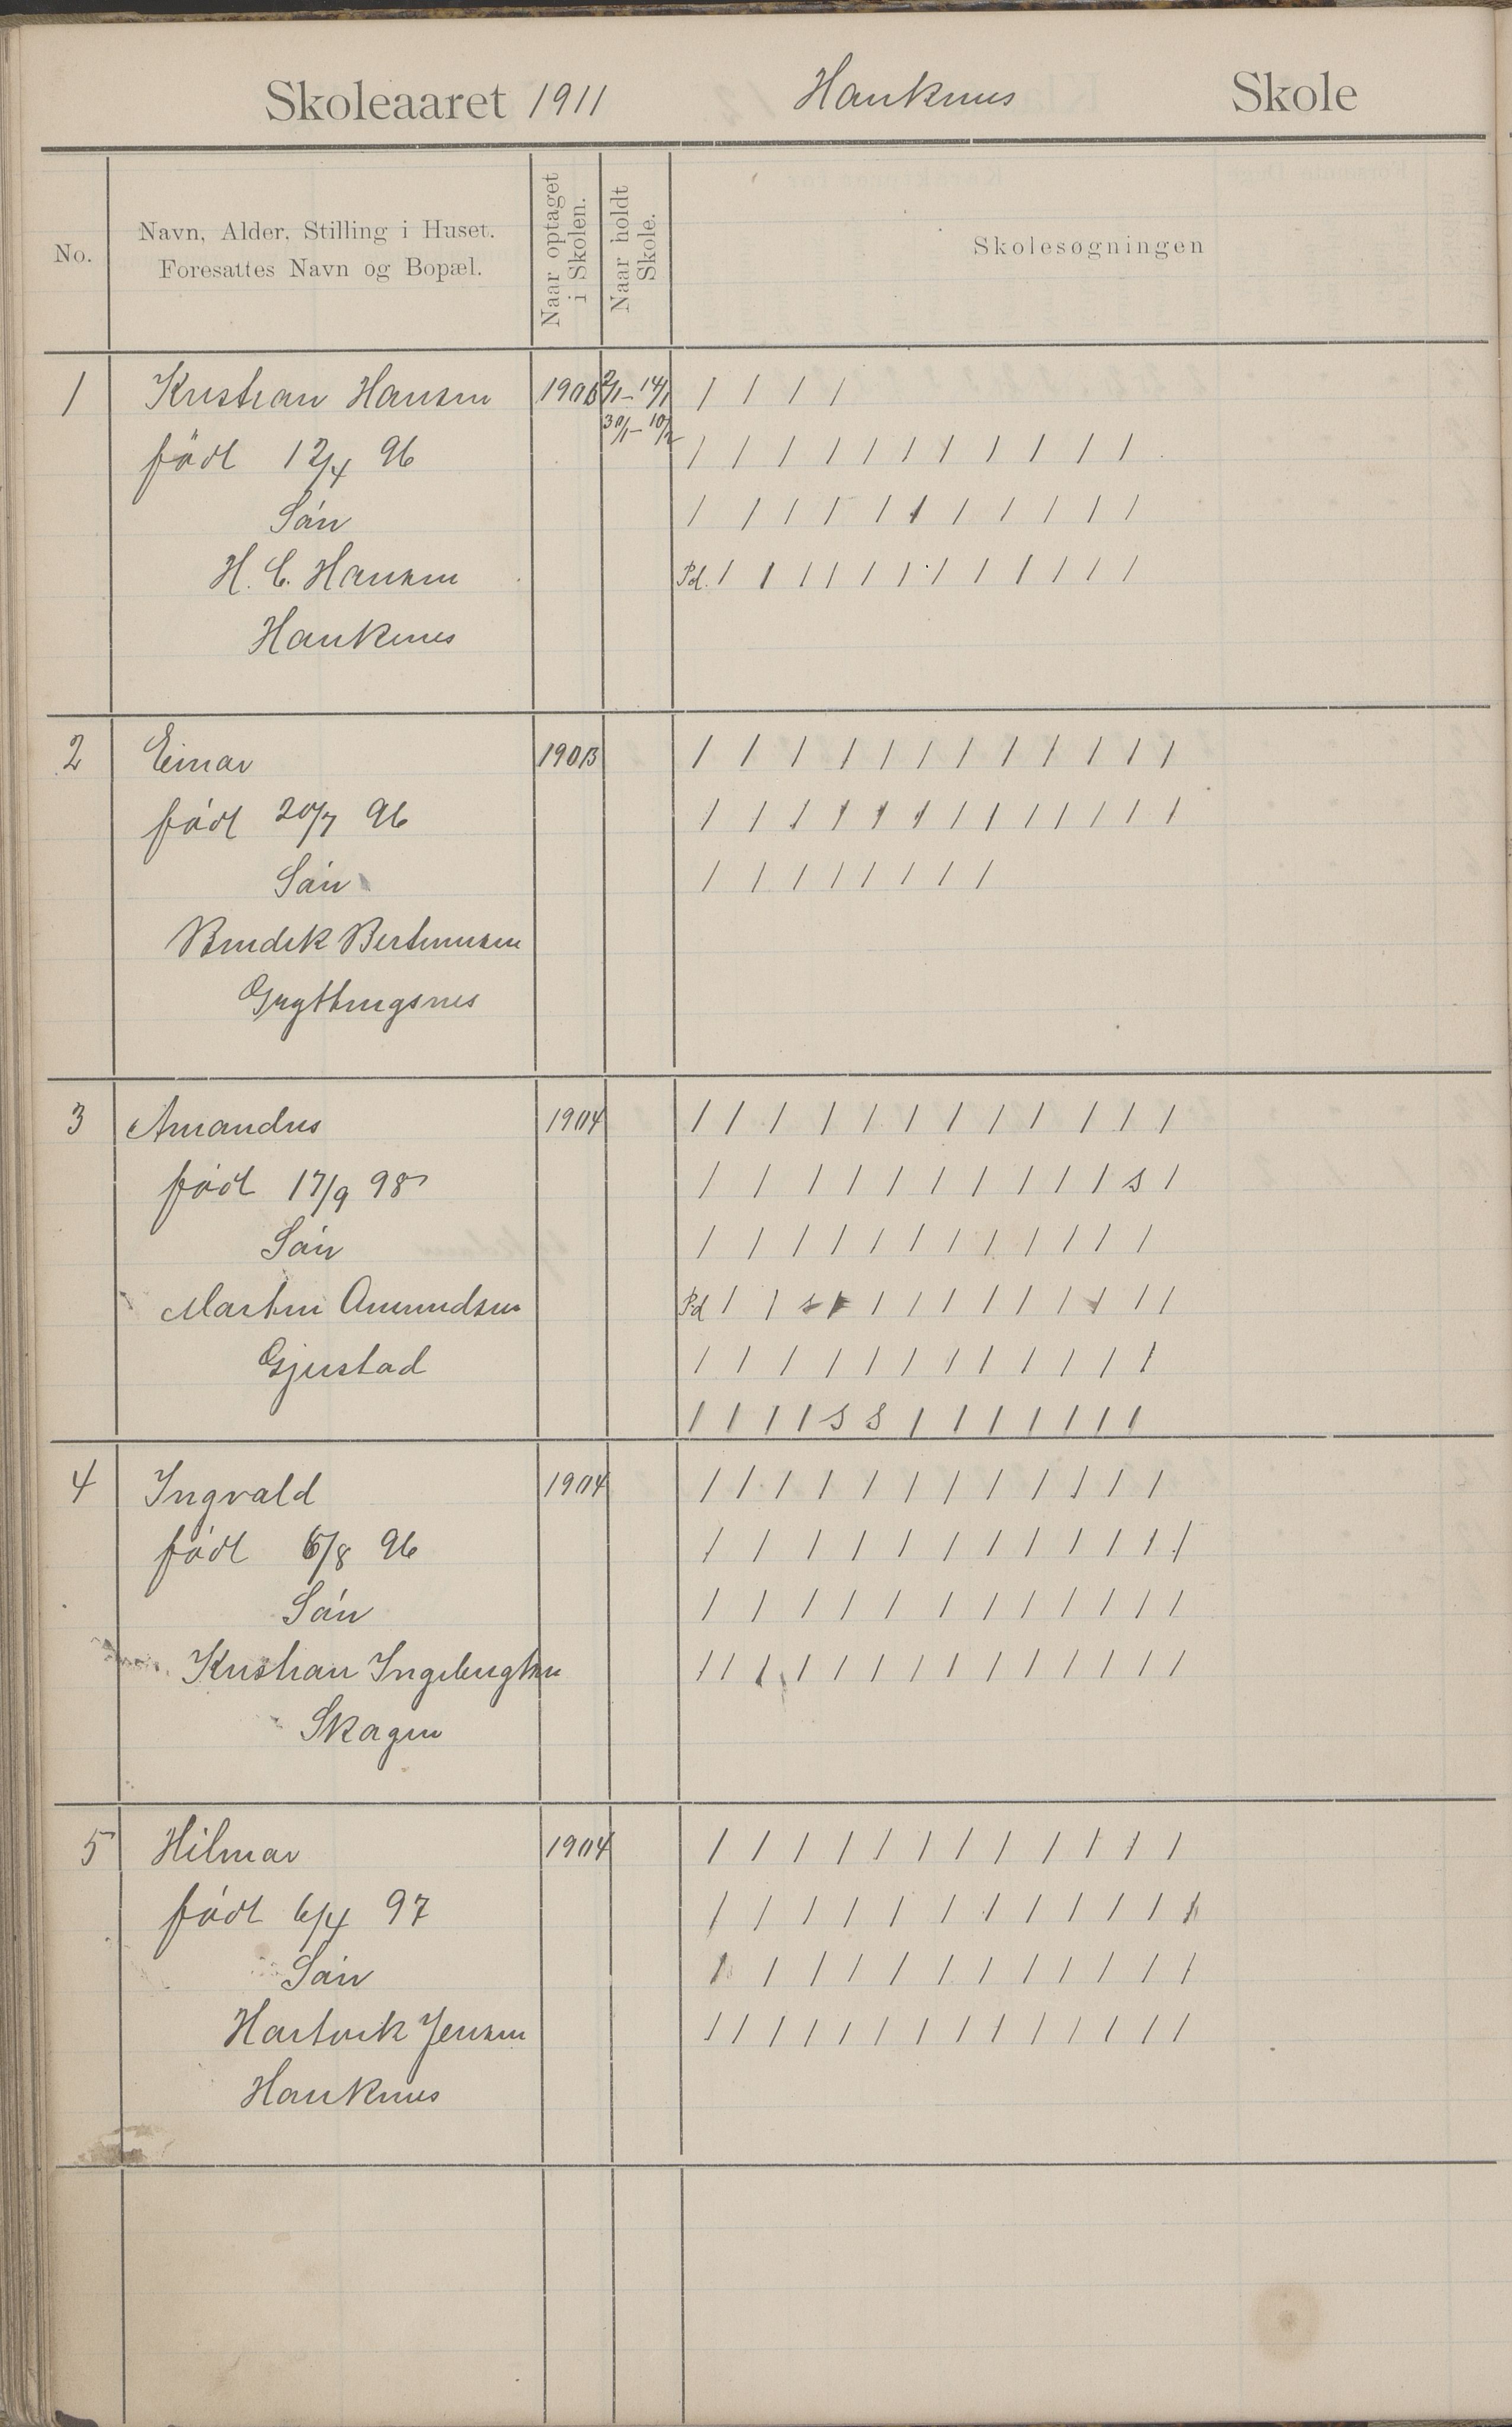 Skoleaaret 1911 Hauknes Skole
No.
Navn, Alder, Stilling i Huset.
Foresattes Navn og Bopæl.
Naar optaget
i Skolen.
Naar holdt
Skole.
Skolesøgningen
1 Kristian Hansen 1903 2/1 - 14/1 / / / /
født 12/4 96 30/1 - 10/2 / / / / / / / / / / /
Søn / / / / / / / / / / /
H. C. Hansen Pd. / / / / / / / / / / / /
Hauknes
2 Einar 1903 / / / / / / / / / / / /
født 20/7 96 / / / / / / / / / / / / /
Søn / / / / / / / /
Bendik Bertinusen
Grythingsnes
3 Amandus 1904 / / / / / / / / / / / /
født 17/9 98 / / / / / / / / / / s /
Søn / / / / / / / / / / / /
Martin Amundsen Pd / / s / / / / / / / / / /
Gjestad / / / / / / / / / / / /
/ / / / s s / / / / / / /
4 Ingvald 1904 / / / / / / / / / / / /
født 6/8 96 / / / / / / / / / / / /
Søn / / / / / / / / / / / /
Kristian Ingebrigtsen / / / / / / / / / / / / / /
Skagen
5 Hilmar 1904 / / / / / / / / / / / /
født 6/4 97 / / / / / / / / / / / /
Søn / / / / / / / / / / / /
Hartvik Jensen / / / / / / / / / / / / / /
Hauknes